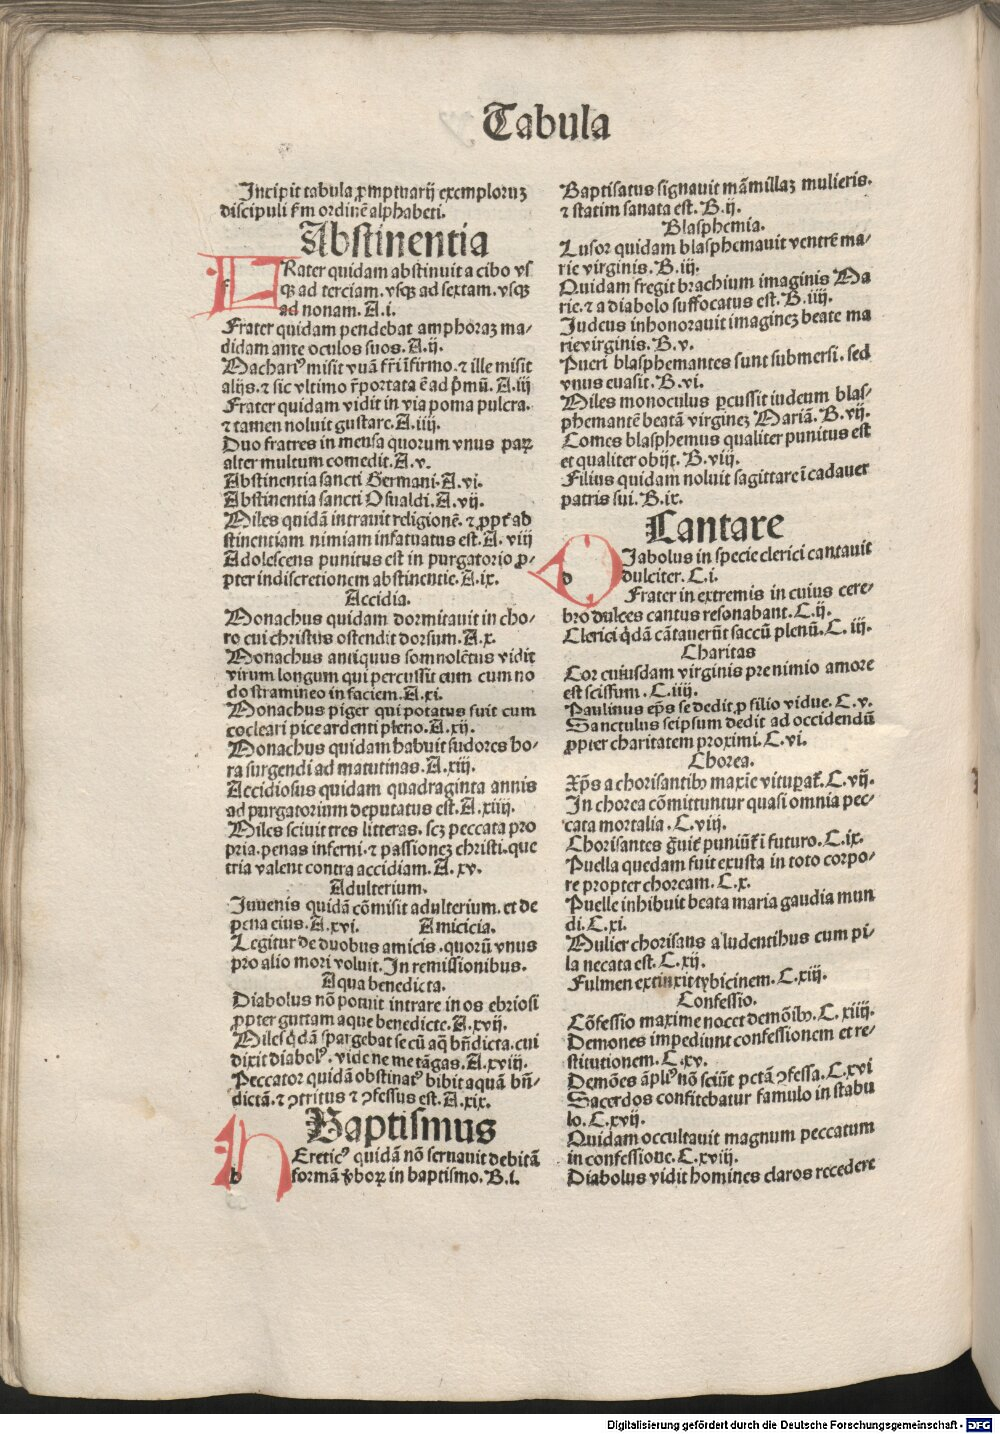 Tabula
Incipit tabula ꝓmptuarij exemploruꝫ
discipuli ẜm ordinē alphabeti.
Abstinentia
FRater quidam abstinuit a cibo vs
qꝫ ad terciam. vsqꝫ ad sextam. vsqꝫ
ad nonam. A.i.
Frater quidam pendebat amphoraꝫ ma-
didam ante oculos suos. A.ij.
Machariꝰ misit vuā fr̄i īfirmo. ⁊ ille misit
alijs. ⁊ sic vltimo r̄portata ē ad p̄mū. A.iij
Frater quidam vidit in via poma pulcra.
⁊ tamen noluit gustare. A.iiij.
Duo fratres in mensa quorum vnus paꝝ
alter multum comedit. A.v.
Abstinentia sancti Germani. A.vi.
Abstinentia sancti Osualdi. A.vij.
Miles quidā intrauit religionē. ⁊ ꝓpt̄ ad
stinentiam nimiam infatuatus est. A. viij
Adolescens punitus est in purgatorio ꝓ-
pter indiscretionem abstinentie. A.ix.
Accidia.
Monachus quidam dormitauit in cho-
ro cui christus ostendit dorsum. A.x.
Monachus antiquus somnolētus vidit
virum longum qui percussit eum cum no
do stramineo in faciem. A.xi.
Monachus piger qui potatus fuit cum
cocleari pice ardenti pleno. A.xij.
Monachus quidam habuit sudores ho-
ra surgendi ad matutinas. A.xiij.
Accidiosus quidam quadraginta annis
ad purgatorium deputatus est. A.xiiij.
Miles sciuit tres litteras. scꝫ peccata pro
pria. penas inferni. ⁊ passioneꝫ christi. que
tria valent contra accidiam. A. xv.
Adulterium.
Iuuenis quidā cōmisit adulterium. et de
pena eius. A.xvi. Amicicia.
Legitur de duobus amicis. quorū vnus
pro alio mori voluit. In remissionibus.
Aqua benedicta.
Diabolus nō potuit intrare in os ebriosi
ꝓpter guttam aque benedicte. A.xvij.
Miles qͥdā spargebat se cū aqͣ bn̄dicta. cui
dixit diabolꝰ. vide ne me tāgas. A.xviij.
Peccator quidā obstinatꝰ bibit aquā bn̄-
dictā. ⁊ ꝯtritus ⁊ ꝯfessus est. A.xix.
Baptismus
hEreticꝰ quidā nō seruauit debitā
b formā v̄boꝝ in baptismo. B.i.
Baptisatus signauit māmillaꝫ mulieris.
⁊ statim sanata est. B.ij.
Blasphemia.
Lusor quidam blasphemauit ventrē ma-
rie virginis. B.iij.
Quidam fregit brachium imaginis Ma
rie. ⁊ a diabolo suffocatus est. B.iiij.
Iudeus inhonorauit imagineꝫ beate ma
rie virginis. B.v.
Pueri blasphemantes sunt submersi. sed
vnus euasit. B.vi.
Miles monoculus ꝑcussit iudeum blas-
phemantē beatā virgineꝫ Mariā. B.vij.
Comes blasphemus qualiter punitus est
et qualiter obijt. B.viij.
Filius quidam noluit sagittare ī cadauer
patris sui. B.ix.
Cantare
DIabolus in specie clerici cantauit
d dulciter. C.i.
Frater in extremis in cuius cere-
bro dulces cantus resonabant. C.ij.
Clerici qͥdā cātauerūt saccū plenū. C. iij.
Charitas
Cor cuiusdam virginis pre nimio amore
est scissum. C.iiij.
Paulinus ep̄s se dedit ꝓ filio vidue. C.v.
Sanctulus seipsum dedit ad occidendū
ꝓpter charitatem proximi. C.vi.
Chorea.
Xp̄s a chorisantibꝰ maxīe vituꝑat̄. C.vij.
In chorea cōmittuntur quasi omnia pec-
cata mortalia. C.viij.
Chorisantes ḡuit̄ puniūt̄ ī futuro. C.ix.
Puella quedam fuit exusta in toto corpo-
re propter choream. C.x.
Puelle inhibuit beata maria gaudia mun
di. C.xi.
Mulier chorisans a ludentibus cum pi-
la necata est. C.xij.
Fulmen extinxit tybicinem. C.xiij.
Confessio.
Cōfessio maxime nocet demōibꝰ. C.xiiij.
Demones impediunt confessionem et re-
stitutionem. C.xv.
Demōes āpliꝰ nō sciūt pctā ꝯfessa. C.xvi
Sacerdos confitebatur famulo in stabu
lo. C.xvij.
Quidam occultauit magnum peccatum
in confessione. C.xviij.
Diabolus vidit homines claros recedere
Digitalisierung gefördert durch die Deutsche Forschungsgemeinschaft - DFG